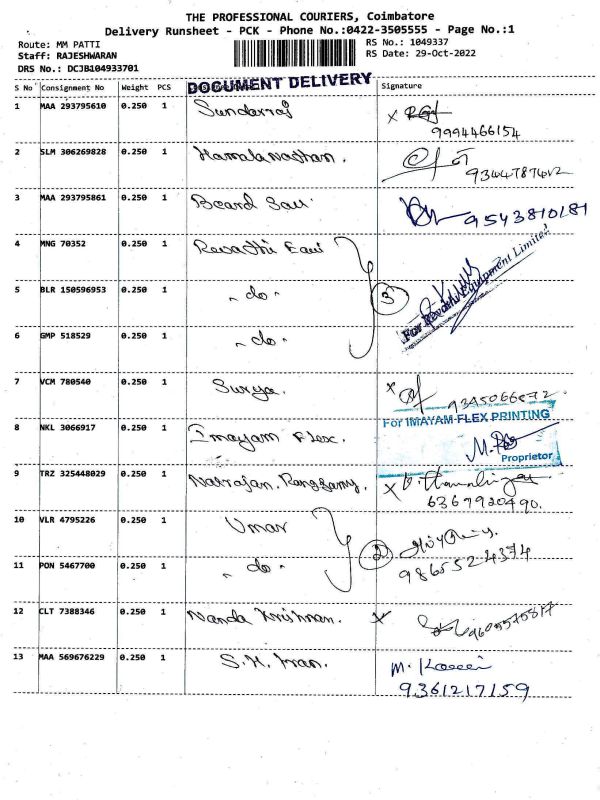 THE PROFESSIONAL COURIERS, Coimbatore
Delivery Runsheet - PCK - Phone No.:0422-3505555 - Page No.:1
Route: MM PATTI
RS No.: 1049337
Staff: RAJESHWARAN
RS Date: 29-Oct-2022
DRS No.: DCJB104933701
DOCUMENT DELIVERY
S No Consignment No Weight PCS Signature
1 MAA 293795610 0.250 1 Sundarraj x
9994466154
2 SLM 306269828 0.250 1 Kamalanathan.
3 MAA 293795861 0.250 1 9543810181
4 MNG 70352 0.250 1 Revathi
5 BLR 150596953 0.250 1 - do - 3
For Equipment Limited
6 GMP 518529 0.250 1 - do -
7 VCM 780540 0.250 1 Surya. x
For IMAYAM FLEX PRINTING
8 NKL 3066917 0.250 1 Imayam Flex.
Proprietor
9 TRZ 325448029 0.250 1 Natrajan. Rangsamy. x
6367920490.
10 VLR 4795226 0.250 1 Umar 2
9865524374
11 PON 5467700 0.250 1 - do -
12 CLT 7388346 0.250 1 Nanda Krishnan. x
13 MAA 569676229 0.250 1 S.K. M.
9361217159